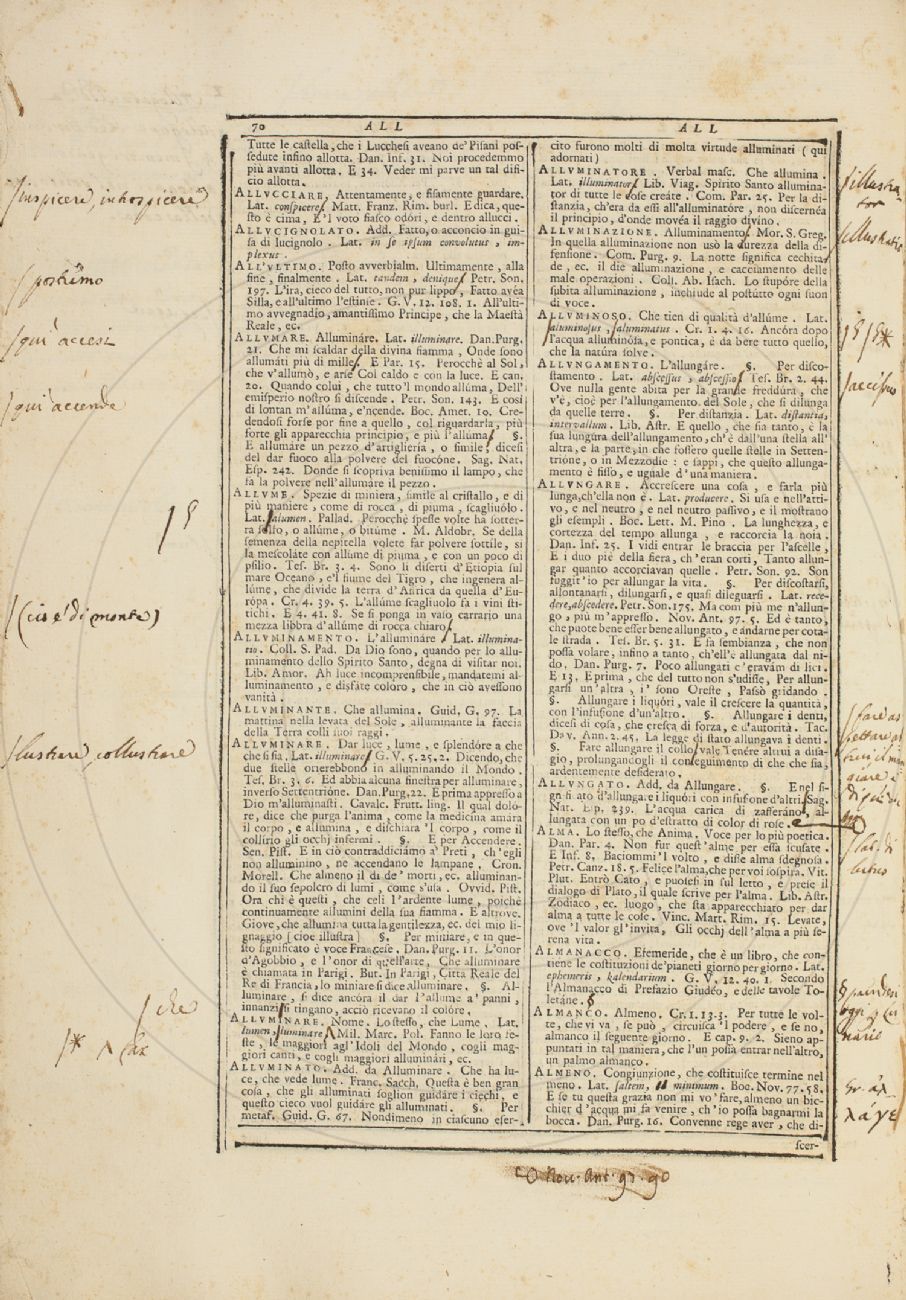 70 ALL ALL
Tutte le castella, che i Lucchesi aveano de' Pisani pos-
sedute infino allotta. Dan. Inf. 31. Noi procedemmo
più avanti allotta. E 34. Veder mi parve un tal difi-
cio allotta.
ALLVCCIARE. Attentamente, e fisamente guardare.
Lat. conspicere. Matt. Franz. Rim. burl. E dica, que-
sto è cima, E 'l voto fiasco odóri, e dentro allucci.
ALLVCIGNOLATO. Add. Fatto, o acconcio in gui-
sa di lucignolo. Lat. in se ipsum convolutus, im-
plexus.
ALL'VLTIMO. Posto avverbialm. Ultimamente, alla
fine, finalmente. Lat. tandem, denique. Petr. Son.
197. L'ira, cieco del tutto, non pur lippo, Fatto avéa
Silla, e all'ultimo l'estinse. G. V. 12. 108. 1. All'ulti-
mo avvegnadío, amantissimo Principe, che la Maestà
Reale, ec.
ALLVMARE. Alluminàre. Lat. illuminare. Dan. Purg.
21. Che mi scaldar della divina fiamma, Onde sono
allumàti più di mille. E Par. 15. Perocchè al Sol,
che v'allumò, e arse Col caldo e con la luce. E can.
20. Quando colui, che tutto 'l mondo allúma, Dell'
emisperio nostro si discende. Petr. Son. 143. E così
di lontan m'allúma, e'ncende. Boc. Amet. 10. Cre-
dendosi forse por fine a quello, col riguardarla, più
forte gli apparecchia principio, e più l'allúma. §.
E allumáre un pezzo d'artiglieria, o simile, dicesi
del dar fuoco alla polvere del fuocóne. Sag. Nat.
Esp. 242. Donde si scopriva benissimo il lampo, che
fa la polvere nell'allumáre il pezzo.
ALLVME. Spezie di miniera, simile al cristallo, e di
più maniere, come di rocca, di piuma, scagliuólo.
Lat. alumen. Pallad. Perocchè spesse volte ha sotter-
ra solfo, o allúme, o bitúme. M. Aldobr. Se della
semenza della nepitella volete far polvere sottile, si
la mescoláte con allúme di piuma, e con un poco di
psilio. Tes. Br. 3. 4. Sono li diserti d'Etiopia sul
mare Oceano, e'l fiume del Tigro, che ingenera al-
lúme, che divide la terra d'Affrica da quella d'Eu-
rópa. Cr. 4. 39. 5. L'allúme scagliuolo fa i vini sti-
tichi. E 4. 41. 8. Se si ponga in vaso carrario una
mezza libbra d'allúme di rocca chiaro.
ALLVMINAMENTO. L'allumináre. Lat. illumina-
tio. Coll. S. Pad. Da Dio sono, quando per lo allu-
minamento dello Spirito Santo, degna di visitar noi.
Lib. Amor. Ah luce incomprensibile, mandatemi al-
luminamento, e disfate colóro, che in ciò avessono
vanità.
ALLVMINANTE. Che allumina. Guid. G. 97. La
mattina nella levata del Sole, alluminante la faccia
della Terra colli suoi raggi.
ALLVMINARE. Dar luce, lume, e splendóre a che
che si sia. Lat. illuminare. G. V. 5. 25. 2. Dicendo, che
due stelle orierebbono in alluminando il Mondo.
Tes. Br. 3. 6. Ed abbia alcuna finestra per alluminare,
inverso Settentrióne. Dan. Purg. 22. E prima appresso a
Dio m'alluminasti. Cavalc. Frutt. ling. Il qual doló-
re, dice che purga l'anima, come la medicina amára
il corpo, e allumina, e dischiara 'l corpo, come il
collirio gli occhj infermi. §. E per Accendere.
Sen. Pist. E in ciò contraddiciámo a' Preti, ch'egli
non alluminino, ne accendano le lampane. Cron.
Morell. Che almeno il dì de' morti, ec. alluminan-
do il suo sepolcro di lumi, come s'usa. Ovvid. Pist.
Ora chi è questi, che celi l'ardente lume, poichè
continuamente allumini della sua fiamma. E altrove.
Giove, che allumina tutta la gentilezza, ec. del mio li-
gnaggio (cioè illustra) §. Per miniare, e in que-
sto significato è voce Francese. Dan. Purg. 11. L'onor
d'Agobbio, e l'onor di quell'arte, Che alluminare
è chiamata in Parigi. But. In Parigi, Città Reale del
Re di Francia, lo miniare si dice alluminare. §. Al-
luminare, si dice ancóra il dar l'allume a' panni,
innanzi si tingano, acciò ricevano il colóre.
ALLVMINARE. Nome. Lo stesso, che Lume. Lat.
lumen, luminare. Mil. Marc. Pol. Fanno le loro fe-
ste, le maggiori agl'Idoli del Mondo, cogli mag-
giori canti, e cogli maggiori allumináti, ec.
ALLVMINATO. Add. da Alluminare. Che ha lu-
ce, che vede lume. Franc. Sacch. Questa è ben gran
cosa, che gli alluminati soglion guidáre i ciechi, e
questo cieco vuol guidáre gli alluminati. §. Per
metaf. Guid. G. 67. Nondimeno in ciascuno eser-
cito furono molti di molta virtude alluminati (qui
adornati)
ALLVMINATORE. Verbal masc. Che allumina.
Lat. illuminator. Lib. Viag. Spirito Santo allumina-
tor di tutte le cose creáte. Com. Par. 25. Per la di-
stanzia, ch'era da essi all'alluminatóre, non discernéa
il principio, d'onde movéa il raggio divino.
ALLVMINAZIONE. Alluminamento. Mor. S. Greg.
In quella alluminazione non usò la durezza della di-
fensione. Com. Purg. 9. La notte significa cechita-
de, ec. il die alluminazione, e cacciamento delle
male operazioni. Coll. Ab. Isach. Lo stupóre della
subita alluminazione, inchiude al postútto ogni suon
di voce.
ALLVMINOSO. Che tien di qualità d'allúme. Lat.
aluminosus, aluminatus. Cr. 1. 4. 16. Ancóra dopo
l'acqua alluminósa, e pontica, è da bere tutto quello,
che la natúra solve.
ALLVNGAMENTO. L'allungáre. §. Per disco-
stamento. Lat. abscessus, abscessio. Tes. Br. 2. 44.
Ove nulla gente abita per la grande freddúra, che
v'è, cioè per l'allungamento del Sole, che si dilunga
da quelle terre. §. Per distanzia. Lat. distantia,
intervallum. Lib. Astr. E quello, che sia tanto, è la
sua lungúra dell'allungamento, ch'è dall'una stella all'
altra, e la parte, in che fossero quelle stelle in Setten-
trióne, o in Mezzodíe: e sappi, che questo allunga-
mento è fisso, e uguale d'una maniera.
ALLVNGARE. Accrescere una cosa, e farla più
lunga, ch'ella non è. Lat. producere. Si usa e nell'atti-
vo, e nel neutro, e nel neutro passívo, e il mostrano
gli esempli. Boc. Lett. M. Pino. La lunghezza, e
cortezza del tempo allunga, e raccorcia la noia.
Dan. Inf. 25. I vidi entrar le braccia per l'ascelle,
E i duo piè della fiera, ch'eran corti, Tanto allun-
gar quanto accorciavan quelle. Petr. Son. 92. Son
fuggit'io per allungar la vita. §. Per discostarsi,
allontanarsi, dilungarsi, e quasi dileguarsi. Lat. rece-
dere, abscedere. Petr. Son. 175. Ma com più me n'allun-
go, più m'appresso. Nov. Ant. 97. 5. Ed è tanto,
che puote bene esser bene allungato, e andarne per cota-
le strada. Tes. Br. 5. 31. E fa sembianza, che non
possa volare, infino a tanto, ch'ell'è allungata dal ni-
do. Dan. Purg. 7. Poco allungati c'eravám di lici.
E 13. Eprima, che del tutto non s'udisse, Per allun-
garsi un'altra, i' sono Oreste, Passò gridando.
§. Allungare i liquóri, vale il crescere la quantità,
con l'infusione d'un'altro. §. Allungare i denti,
dicesi di cosa, che cresca di forza, e d'autorità. Tac.
Dav. Ann. 2. 45. La legge di stato allungava i denti.
§. Fare allungare il collo, vale Tenére altrui a disa-
gio, prolungandogli il conseguimento di che che sia,
ardentemente desiderato.
ALLVNGATO. Add. da Allungare. §. E nel si-
gnificato d'allungare i liquóri con infusione d'altri. Sag.
Nat. Esp. 239. L'acqua carica di zafferáno, al-
lungata con un po d'estratto di color di rose.
ALMA. Lo stesso, che Anima. Voce per lo più poetica.
Dan. Par. 4. Non fur quest'alme per essa scusate.
E Inf. 8. Baciommi 'l volto, e disse alma sdegnosa.
Petr. Canz. 18. 5. Felice l'alma, che per voi sospira. Vit.
Plut. Entrò Cato, e puosesi in sul letto, e prese il
dialogo di Plato, il quale scrive per l'alma. Lib. Astr.
Zodiaco, ec. luogo, che sta apparecchiato per dar
alma a tutte le cose. Vinc. Mart. Rim. 15. Levate,
ove 'l valor gl'invita, Gli occhj dell'alma a più se-
rena vita.
ALMANACCO. Efemeride, che è un libro, che con-
tiene le costituzioni de' pianeti giorno per giorno. Lat.
ephemeris, kalendarium. G. V. 12. 40. 1. Secondo
l'Almanacco di Prefazio Giudéo, e delle tavole To-
letáne.
ALMANCO. Almeno. Cr. 1. 13. 3. Per tutte le vol-
te, che vi va, se può, circuisca 'l podere, e se no,
almanco il seguente giorno. E cap. 9. 2. Sieno ap-
puntati in tal maniera, che l'un possa entrar nell'altro,
un palmo almanco.
ALMENO. Congiunzione, che costituisce termine nel
meno. Lat. saltem, minimum. Boc. Nov. 77. 58.
E se tu questa grazia non mi vo' fare, almeno un bic-
chier d'acqua mi fa venire, ch'io possa bagnarmi la
bocca. Dan. Purg. 16. Convenne rege aver, che di-
scer-
inspicere, introspicere
postremo
qui accesi
qui accende
(cio è di monte)
lustrare, collustrare
che
illustra-
tor
illustratio
Nov. Ant. 97. 90